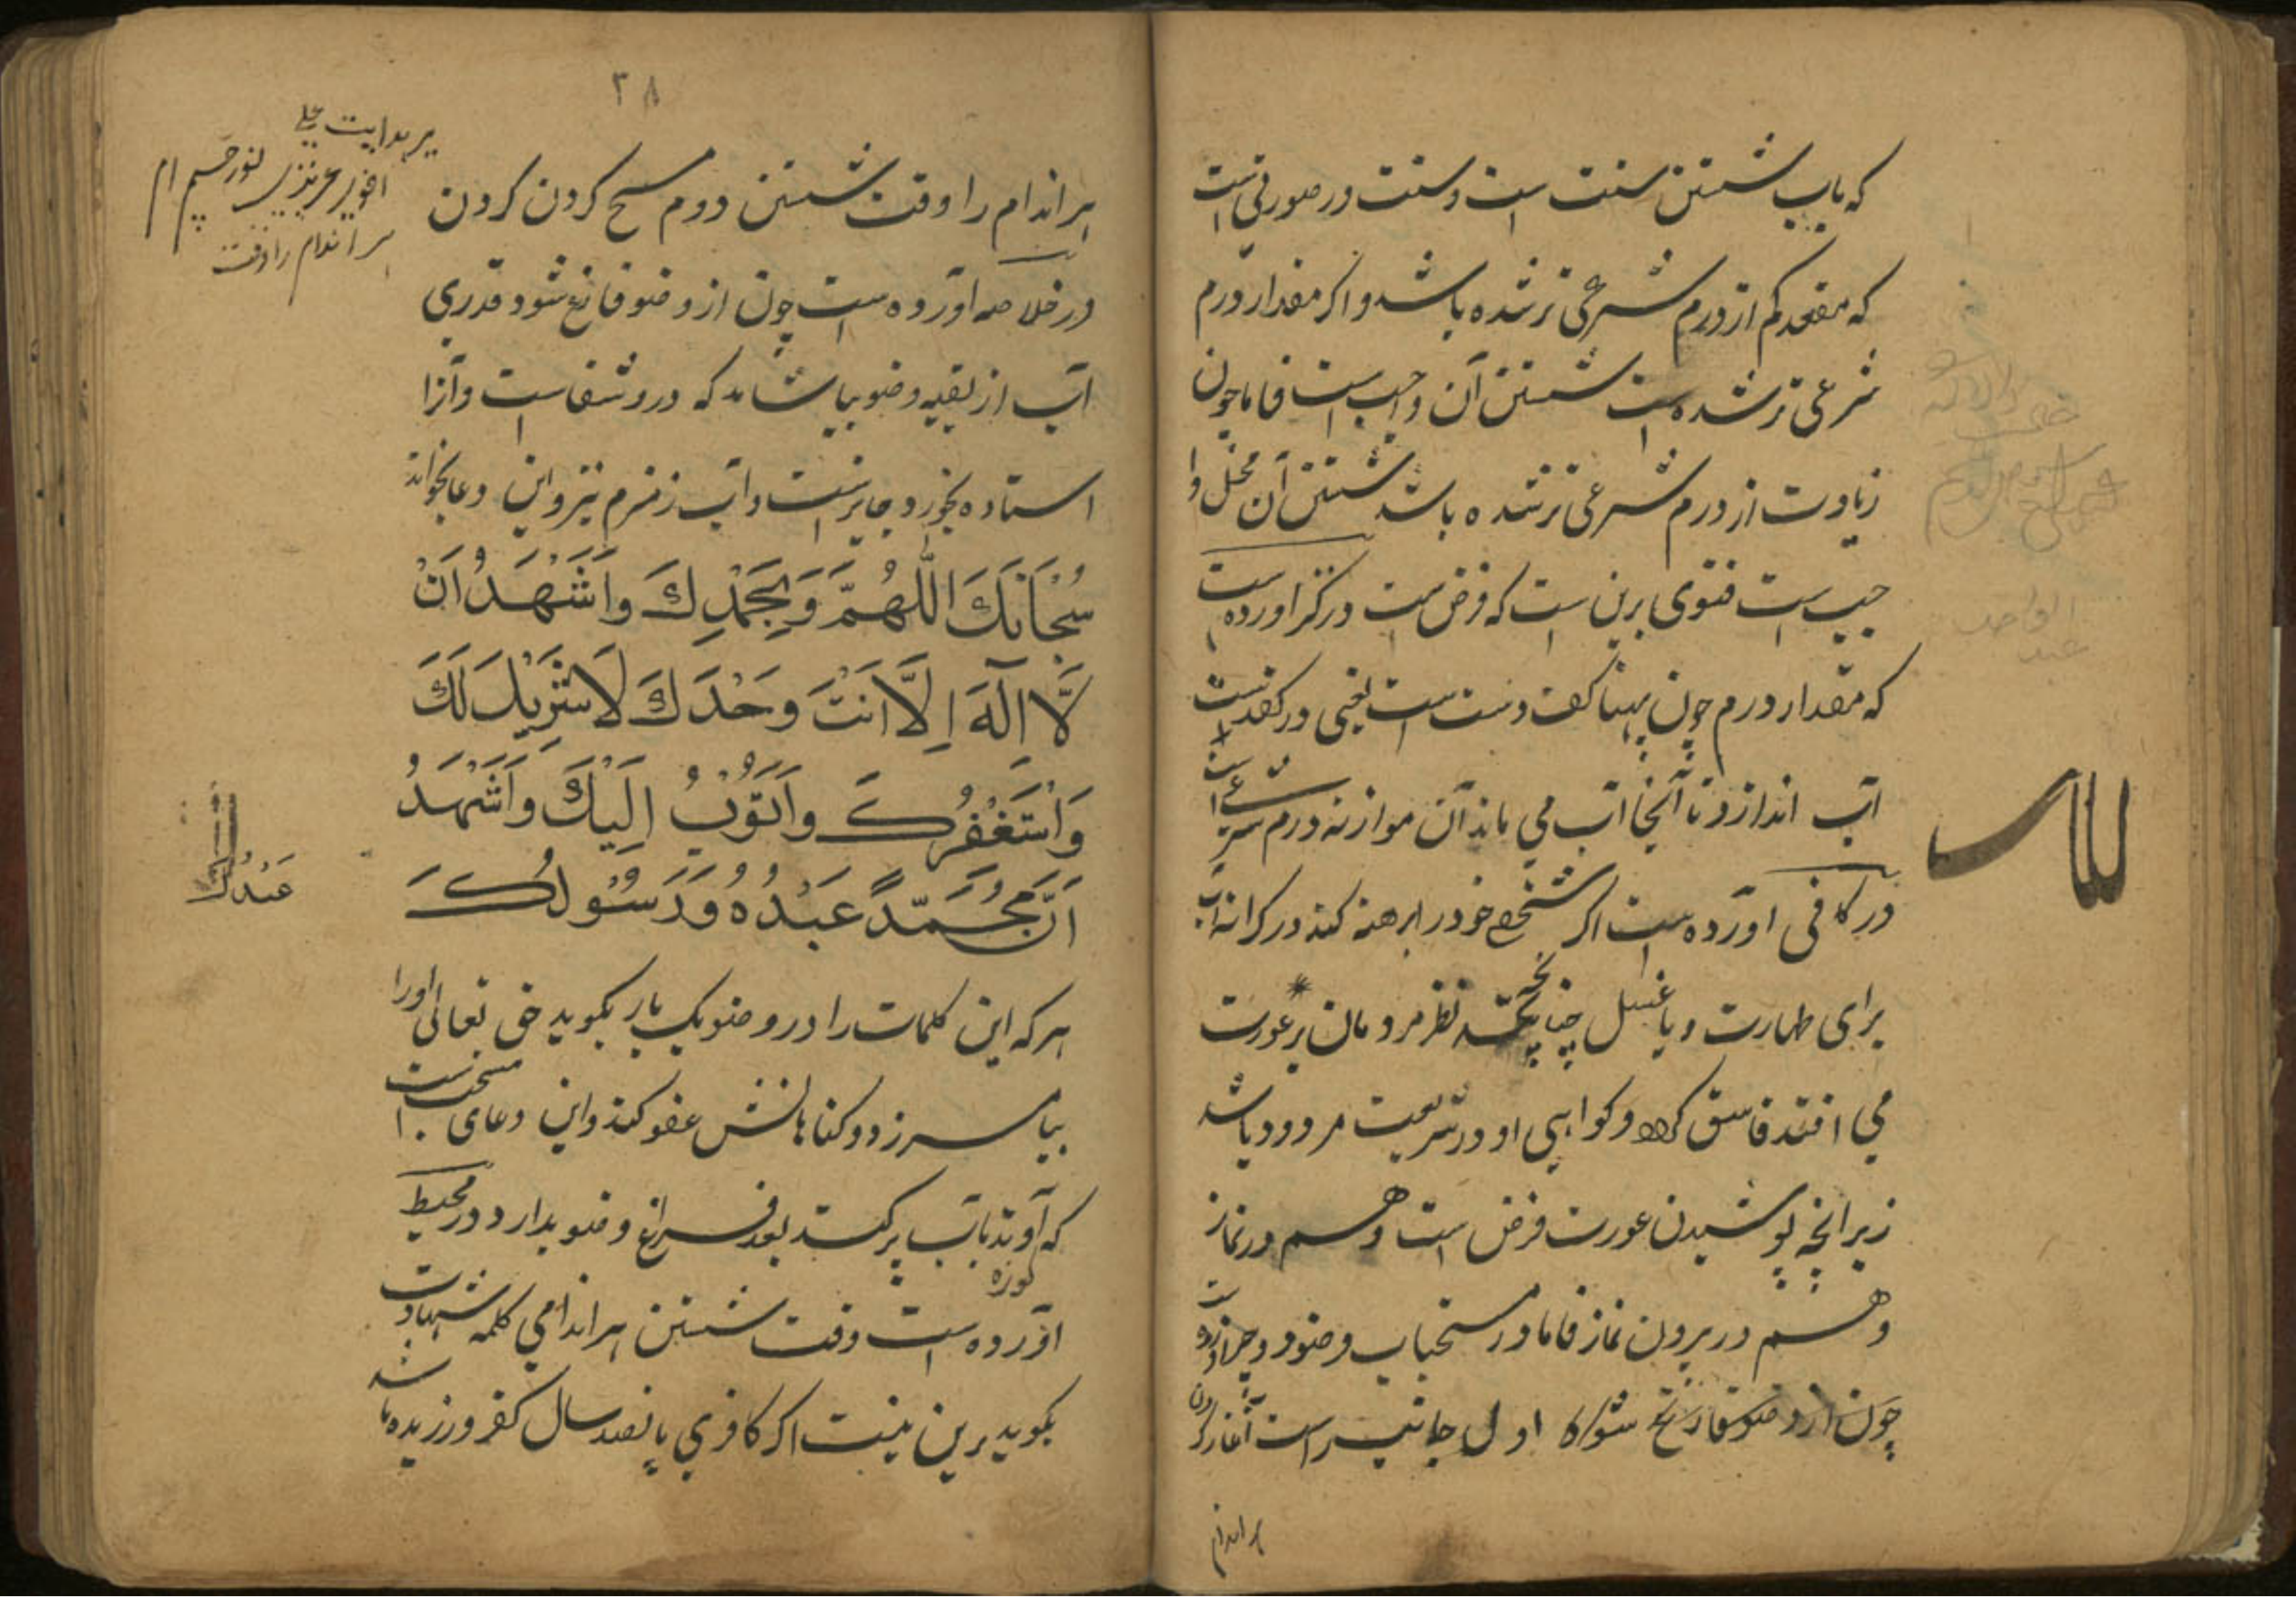 که باب شستن سنت است و سنت در صورتی است
که مقعد کم از درم شرعی تر شده باشد و اکر مقدار درم
شرعی تر شده است شستن آن واجب است فاما چون
زیادت از درم شرعی تر شده باشد شستن آن محل وا
جیب است فتوی برین است که فرض است در کنز اورده است
که مقدار درم چون پهنا کف دست است یعنی در کف دست
آب اندازد تا آنجا آب می ماند آن موازنه درم شرعی است
در کافی اورده است اکر شخصی خود را برهنه کند در کرانه آب
برای طهارت و یا غسل چنانچه نظر مردمان بر عورت
می افتد فاسق کردد و کواهی او در شریعت مردود باشد
زیرانچه پوشیدن عورت فرض است و هم در نماز
و هم در برون نماز فاما در مستحبات وضو
چون از وضو فارغ شود اول جانب راست آغاز کردن
هر اندام
۳۸
هر اندام را وقت شستن دوم مسح کردن کردن
در خلاصه آورده است چون از وضو فارغ شود قدری
آب از بقیه وضو بیاشامد که درو شفاست و آنرا
استاده بخورد جایز است و آب زمزم نیز و این دعا بخواند
سُبْحَانَكَ اللَّهُمَّ وَبِحَمْدِكَ وَاَشْهَدُ اَنْ
لَّا اِلَهَ اِلَّا اَنْتَ وَحْدَكَ لَا شَرِيكَ لَكَ
وَاَسْتَغْفِرُكَ وَاَتُوْبُ اِلَيْكَ وَاَشْهَدُ
اَنَّ مُحَمَّدًا عَبْدُهُ وَرَسُوْلُكَ
عَبْدُكَ
هر که این کلمات را در وضو یک بار بکوید حق تعالی اورا
بیامرزد و کناهانش عفو کند و این دعای مستحب است
که آوند بآب پر کند بعد فراغ وضو بدارد در محیط
کوزه
آورده است وقت شستن هر اندامی کلمه شهادت
بکوید برین نیت اکر کافری پانصد سال کفر ورزیده باشد
پر هدایت علی
هر اندام را وقت